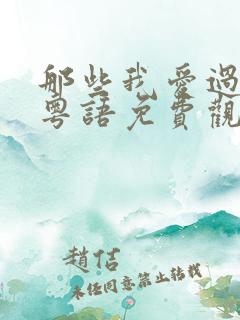 那些我愛過
粵語免費觀
趙佶
未经同意禁止转载